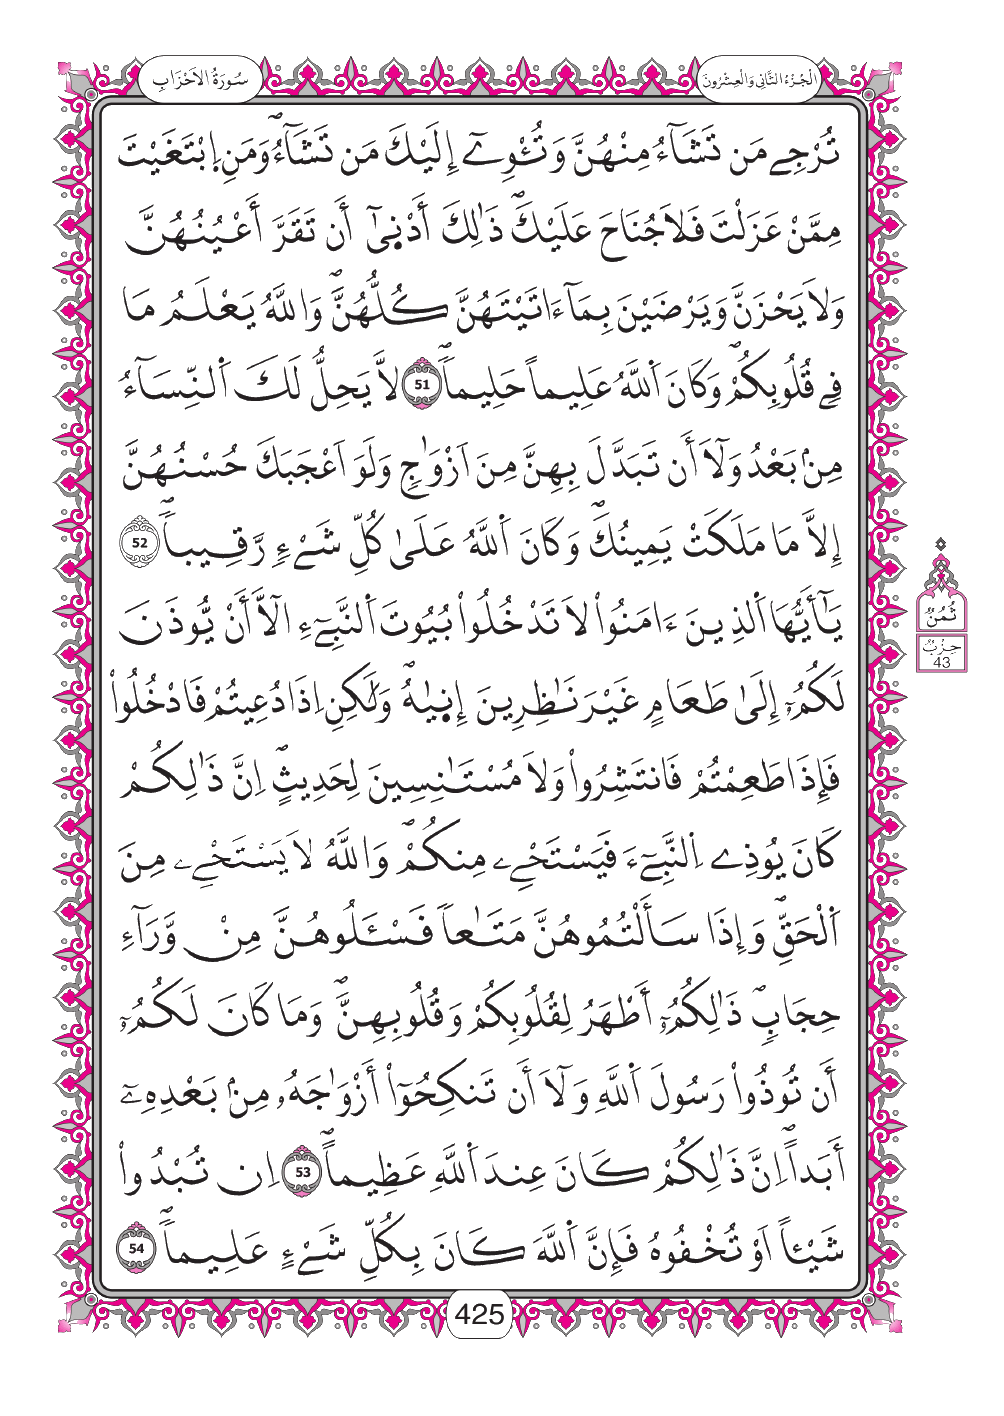 سُورَةُ الاَحْزَابِ
الْجُزْءُ الثَّانِي وَالْعِشْرُونَ
تُرْجِے مَن تَشَآءُ مِنْهُنَّ وَتُـْٔوِےٓ إِلَيْكَ مَن تَشَآءُۖ وَمَنِ اِ۪بْتَغَيْتَ
مِمَّنْ عَزَلْتَ فَلَا جُنَاحَ عَلَيْكَۖ ذَٰلِكَ أَدْن۪يٰٓ أَن تَقَرَّ أَعْيُنُهُنَّ
وَلَا يَحْزَنَّ وَيَرْضَيْنَ بِمَآ ءَاتَيْتَهُنَّ كُلُّهُنَّۖ وَاللَّهُ يَعْلَمُ مَا
فِے قُلُوبِكُمْۖ وَكَانَ اَ۬للَّهُ عَلِيماً حَلِيماًۖ 51 لَّا يَحِلُّ لَكَ اَ۬لنِّسَآءُ
مِنۢ بَعْدُ وَلَآ أَن تَبَدَّلَ بِهِنَّ مِنَ اَزْوَٰجٍ وَلَوَ اَعْجَبَكَ حُسْنُهُنَّ
إِلَّا مَا مَلَكَتْ يَمِينُكَۖ وَكَانَ اَ۬للَّهُ عَلَىٰ كُلِّ شَےْءٍ رَّقِيباًۖ 52
يَٰٓأَيُّهَا اَ۬لذِينَ ءَامَنُواْ لَا تَدْخُلُواْ بُيُوتَ اَ۬لنَّبِےٓءِ الَّآ أَنْ يُّوذَنَ
لَكُمُۥٓ إِلَىٰ طَعَامٍ غَيْرَ نَٰظِرِينَ إِن۪يٰهُۖ وَلَٰكِنِ اِذَا دُعِيتُمْ فَادْخُلُواْ
فَإِذَا طَعِمْتُمْ فَانتَشِرُواْ وَلَا مُسْتَٰنِسِينَ لِحَدِيثٍۖ اِنَّ ذَٰلِكُمْ
كَانَ يُوذِے اِ۬لنَّبِےٓءَ فَيَسْتَحْيِۦ مِنكُمْۖ وَاللَّهُ لَا يَسْتَحْيِۦ مِنَ
اَ۬لْحَقِّۖ وَإِذَا سَأَلْتُمُوهُنَّ مَتَٰعاً فَسْـَٔلُوهُنَّ مِنْ وَّرَآءِ
حِجَابٍۖ ذَٰلِكُمُۥٓ أَطْهَرُ لِقُلُوبِكُمْ وَقُلُوبِهِنَّۖ وَمَا كَانَ لَكُمُۥٓ
أَن تُوذُواْ رَسُولَ اَ۬للَّهِ وَلَآ أَن تَنكِحُوٓاْ أَزْوَٰجَهُۥ مِنۢ بَعْدِهِۦٓ
أَبَداًۖ اِنَّ ذَٰلِكُمْ كَانَ عِندَ اَ۬للَّهِ عَظِيماًۖ 53 اِن تُبْدُواْ
شَيْـٔاً اَوْ تُخْفُوهُ فَإِنَّ اَ۬للَّهَ كَانَ بِكُلِّ شَےْءٍ عَلِيماًۖ 54
ثُمُنٌ
حِزْبُ
43
425